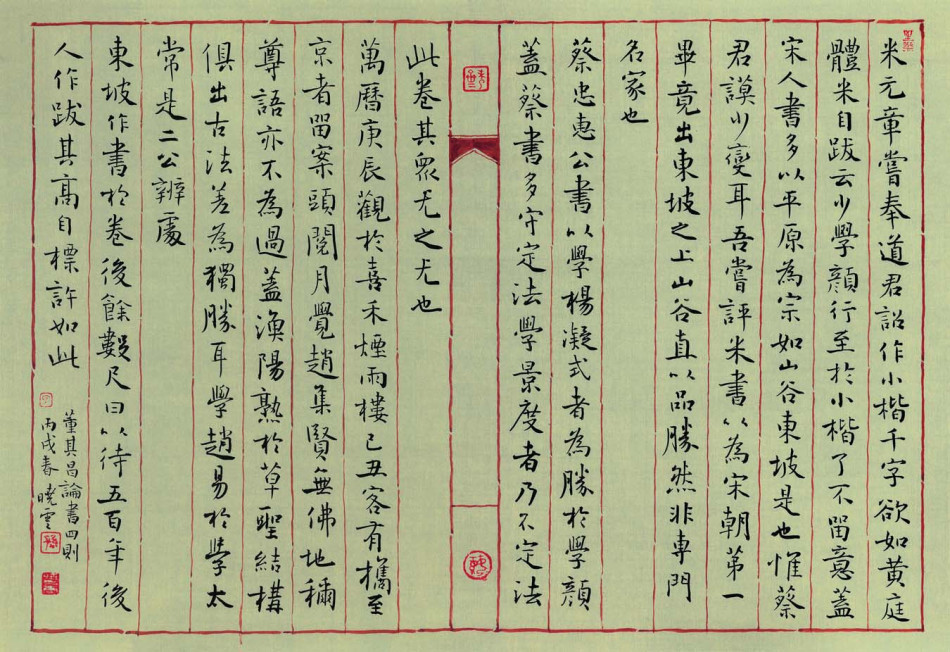 米元章嘗奉道君詔作小楷千字欲如黄庭
體米自跋云少學顔行至於小楷了不留意蓋
宋人書多以平原為宗如山谷東坡是也惟蔡
君謨少變耳吾嘗評米書以為宋朝第一
畢竟出東坡之上山谷直以品勝然非專門
名家也
蔡忠惠公書以學楊凝式者為勝於學顔
蓋蔡書多守定法學景度者乃不定法
此卷其衆尤之尤也
萬曆庚辰觀於喜禾煙雨樓己丑客有攜至
京者留案頭閱月覺趙集賢無佛地稱
尊語亦不為過蓋漁陽熟於草聖結構
俱出古法差為獨勝耳學趙易於學太
常是二公辨處
東坡作書於卷後餘數尺曰以待五百年後
人作跋其高自標許如此
董其昌論書四則
丙戌春 曉雲